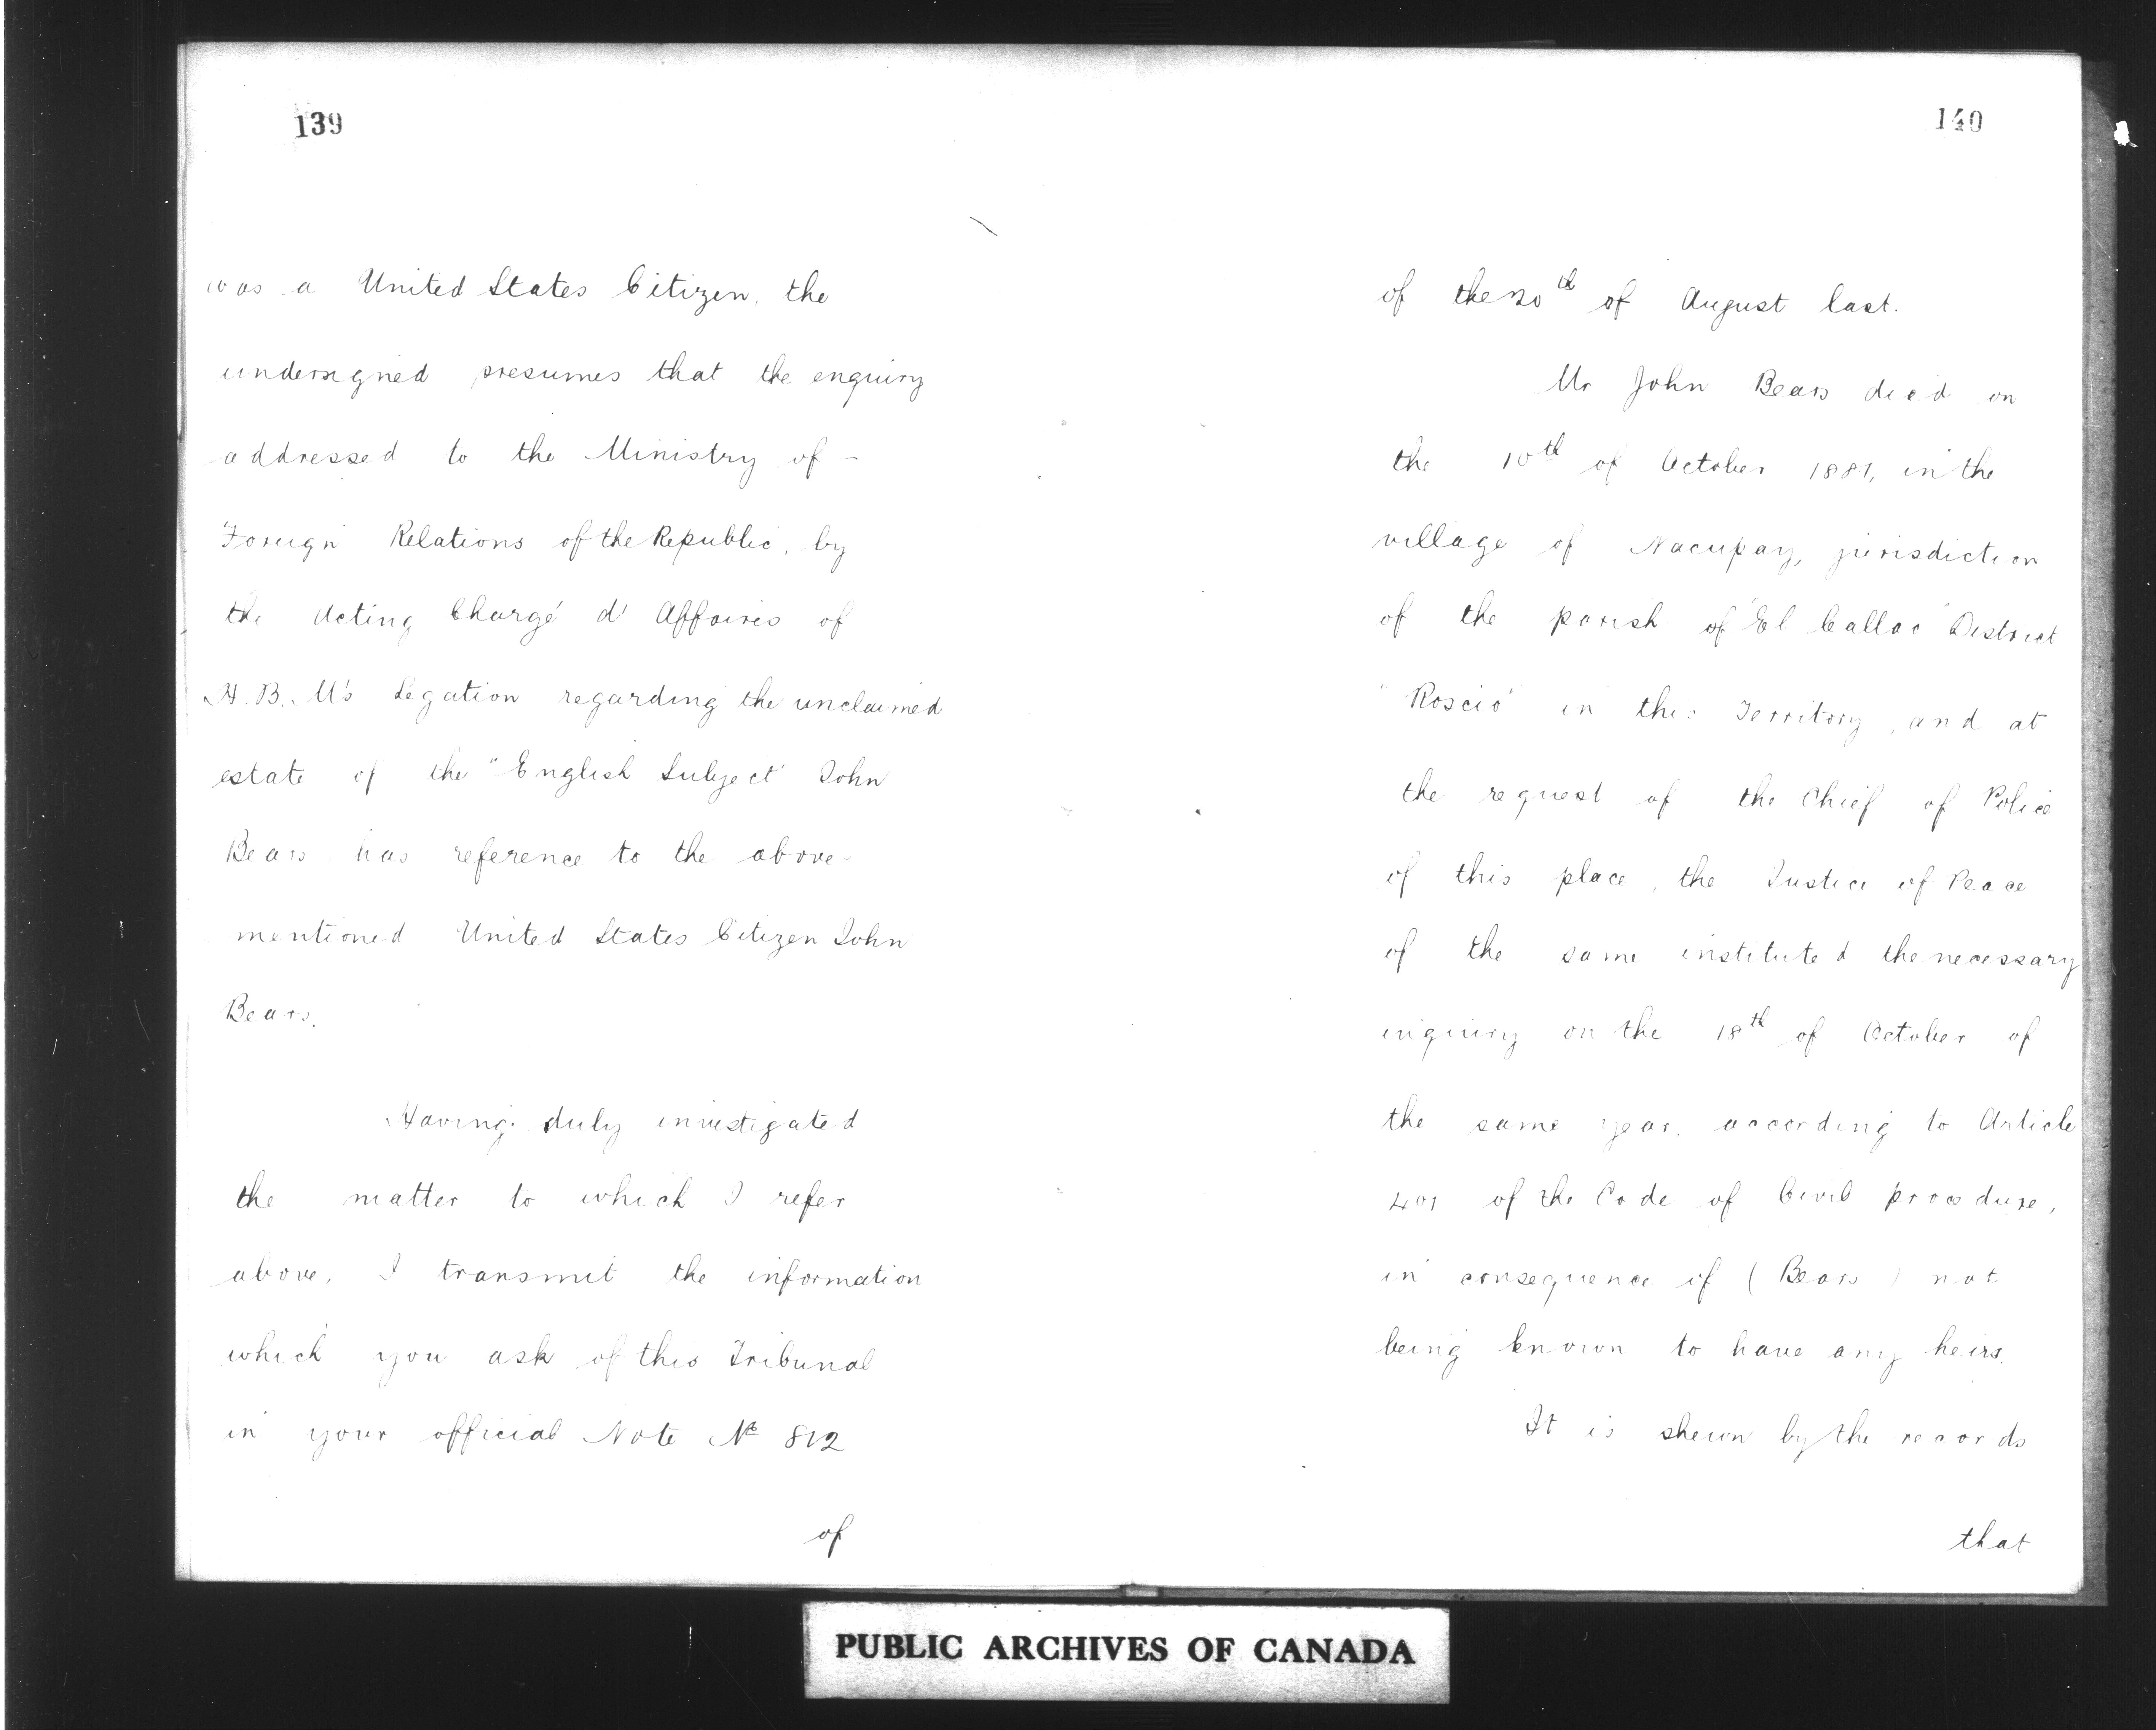 139
was a United States Citizen, the
undersigned presumes that the enquiry
addressed to the Ministry of -
Foreign Relations of the Republic, by
the Acting Chargé d' Affaires of
H. B. M's Legation regarding the unclaimed
estate of the "English Subject" John
Bears has reference to the above-
mentioned United States Citizen John
Bears.
Having duly investigated
the matter to which I refer
above, I transmit the information
which you ask of this Tribunal
in your official Note No 812
of
140
of the 20th of August last.
Mr John Bears died on
the 10th of October 1881, in the
village of Nacupay, jurisdiction
of the parish of "El Callao" District
"Roscio" in this Territory, and at
the request of the Chief of Police
of this place, the Justice of Peace
of the same instituted the necessary
inquiry on the 18th of October of
the same year, according to Article
401 of the Code of Civil procedure,
in consequence of (Bears) not
being known to have any heirs.
It is shewn by the records
that
PUBLIC ARCHIVES OF CANADA